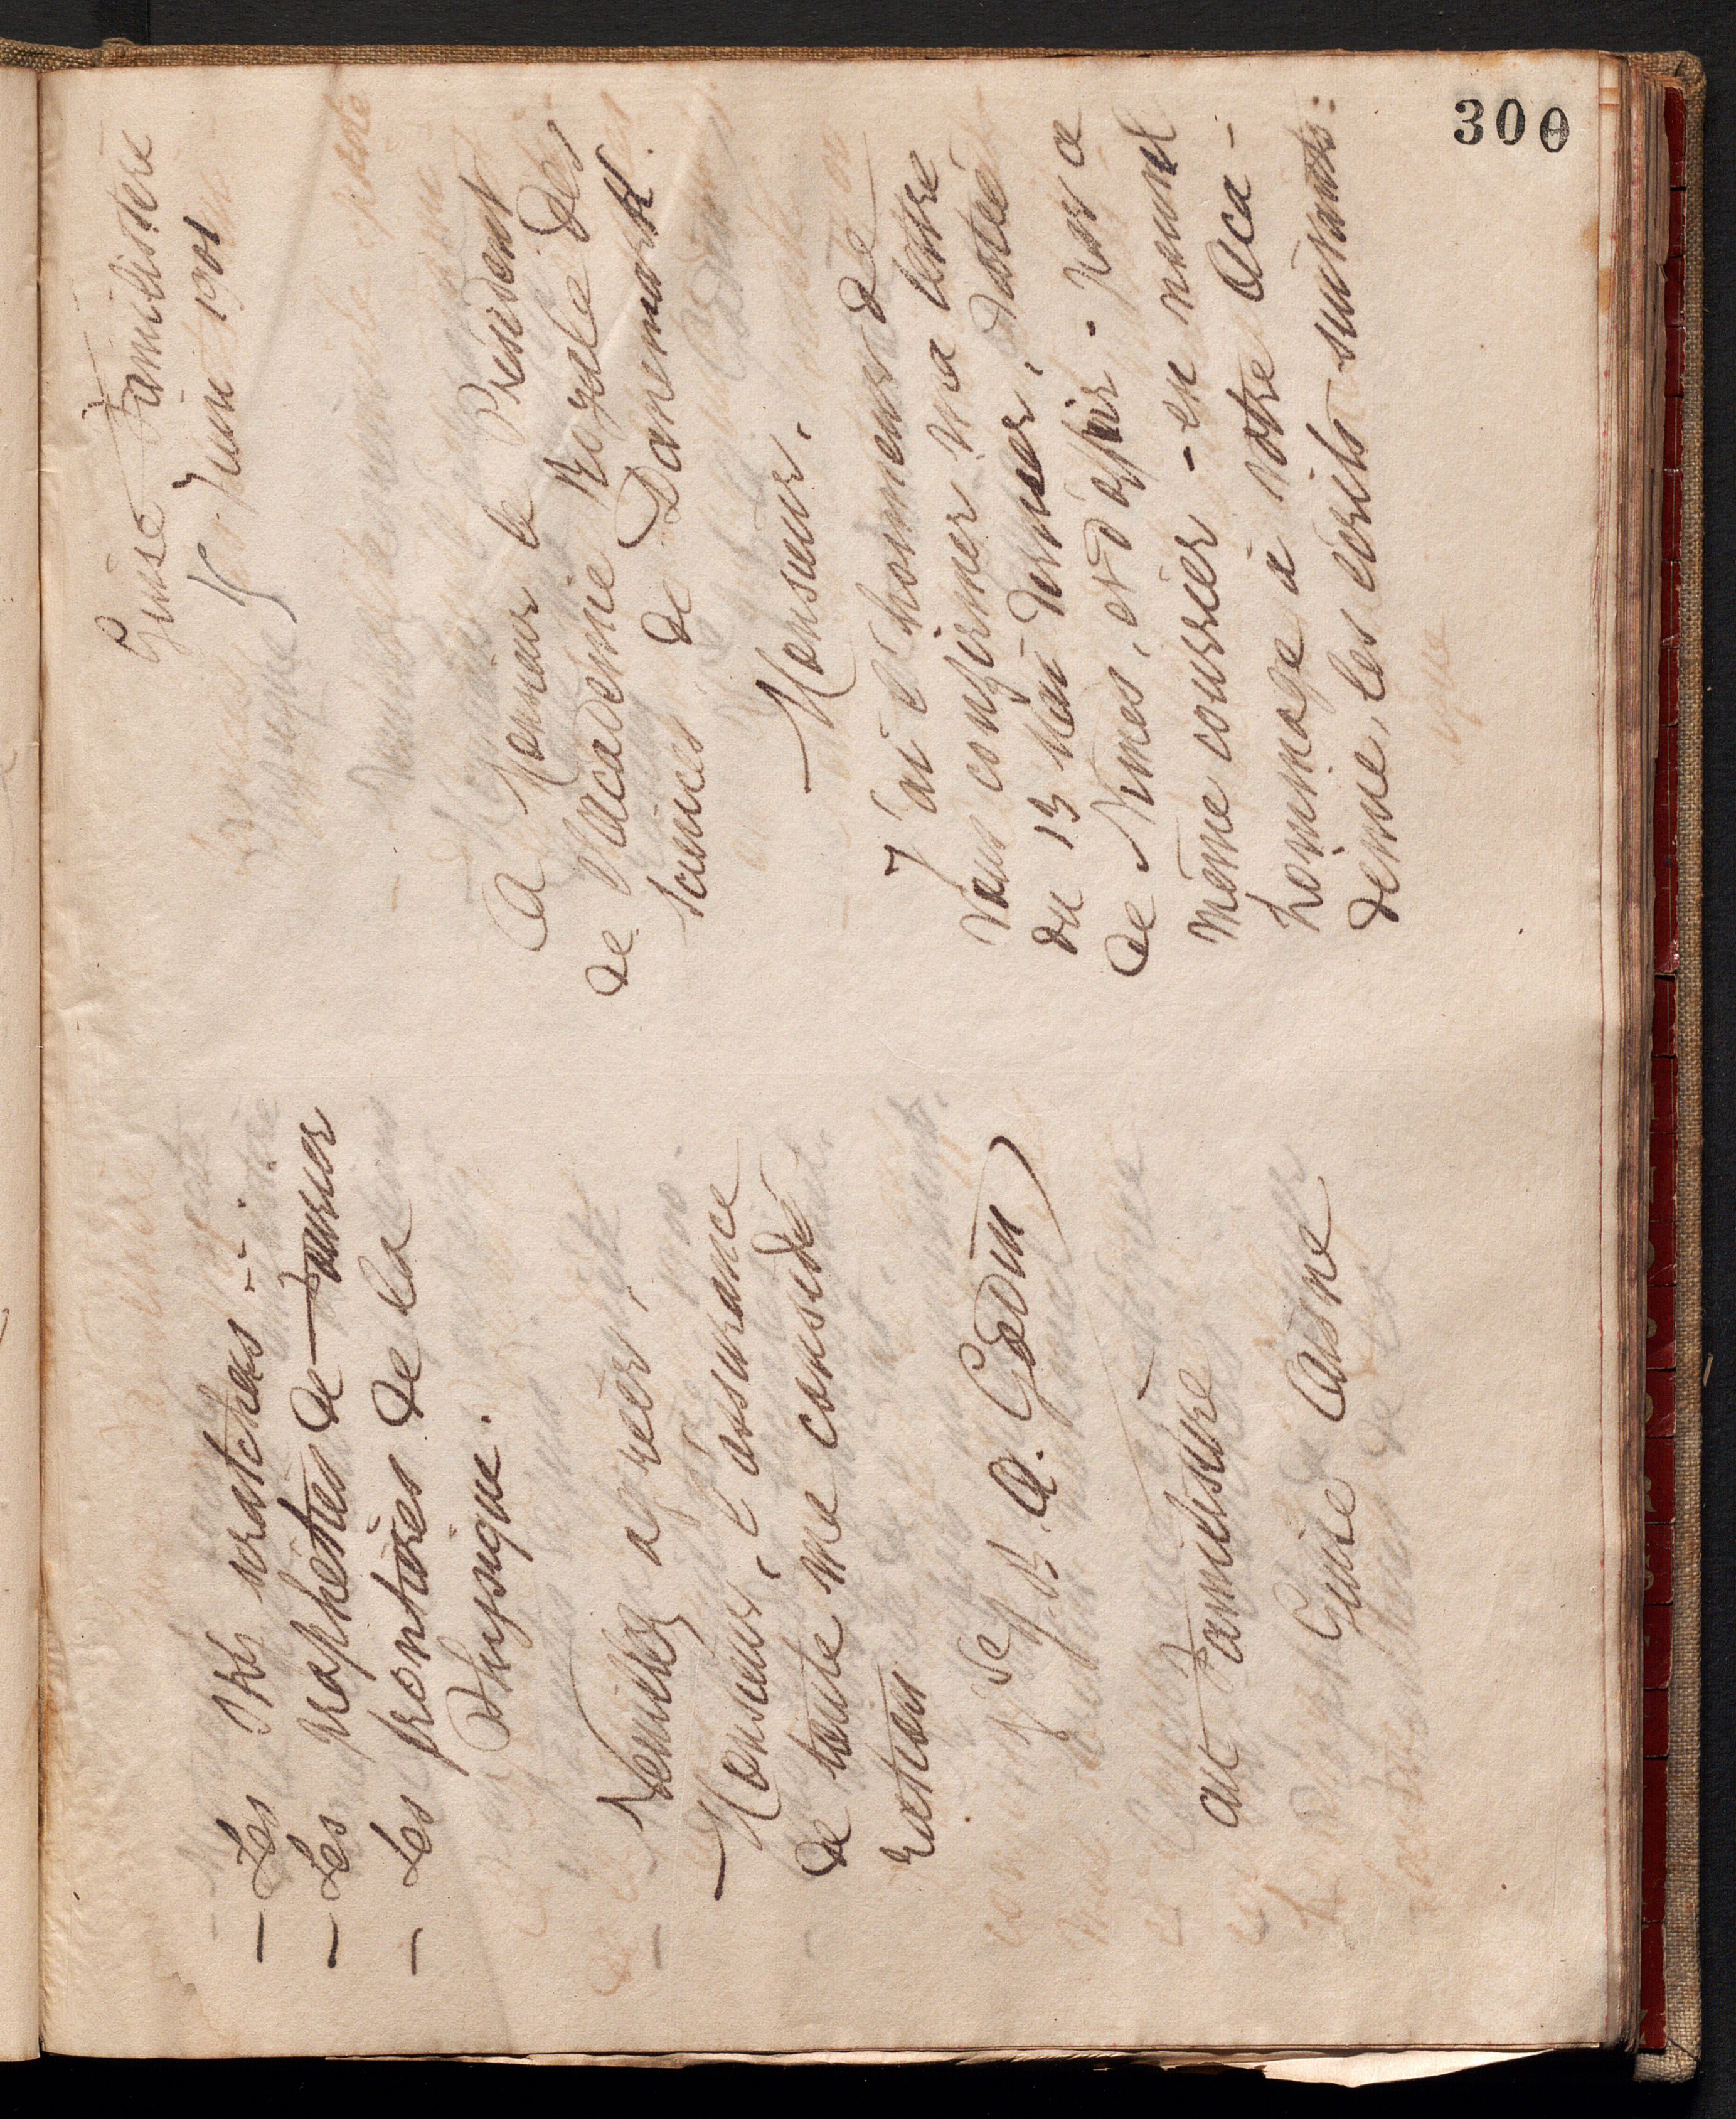 300
Guise Familistère
Juin 1901
A Monsieur le Président
de l'Académie Royale des
sciences de Danemark.
Monsieur,
J'ai l'honneur de
vous confirmer ma lettre
du 13 Mai dernier, datée
de Nîmes, et d'offrir par ce
même courrier - en nouvel
hommage à votre Aca-
démie, les écrits suivants:
- Les
- Les prophéties de Fourier
- Les frontières de la
Physique.
Veuillez agréer,
Monsieur, l'assurance
de toute ma considé
ration
Vve J. B. A. Godin
au Familistère
Guise Aisne